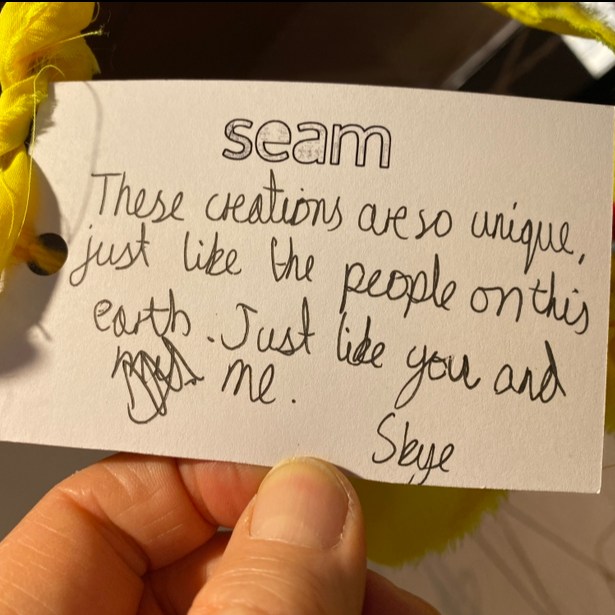 seam
These creations are so unique,
just like the people on this
earth. Just like you and
me.
Skye